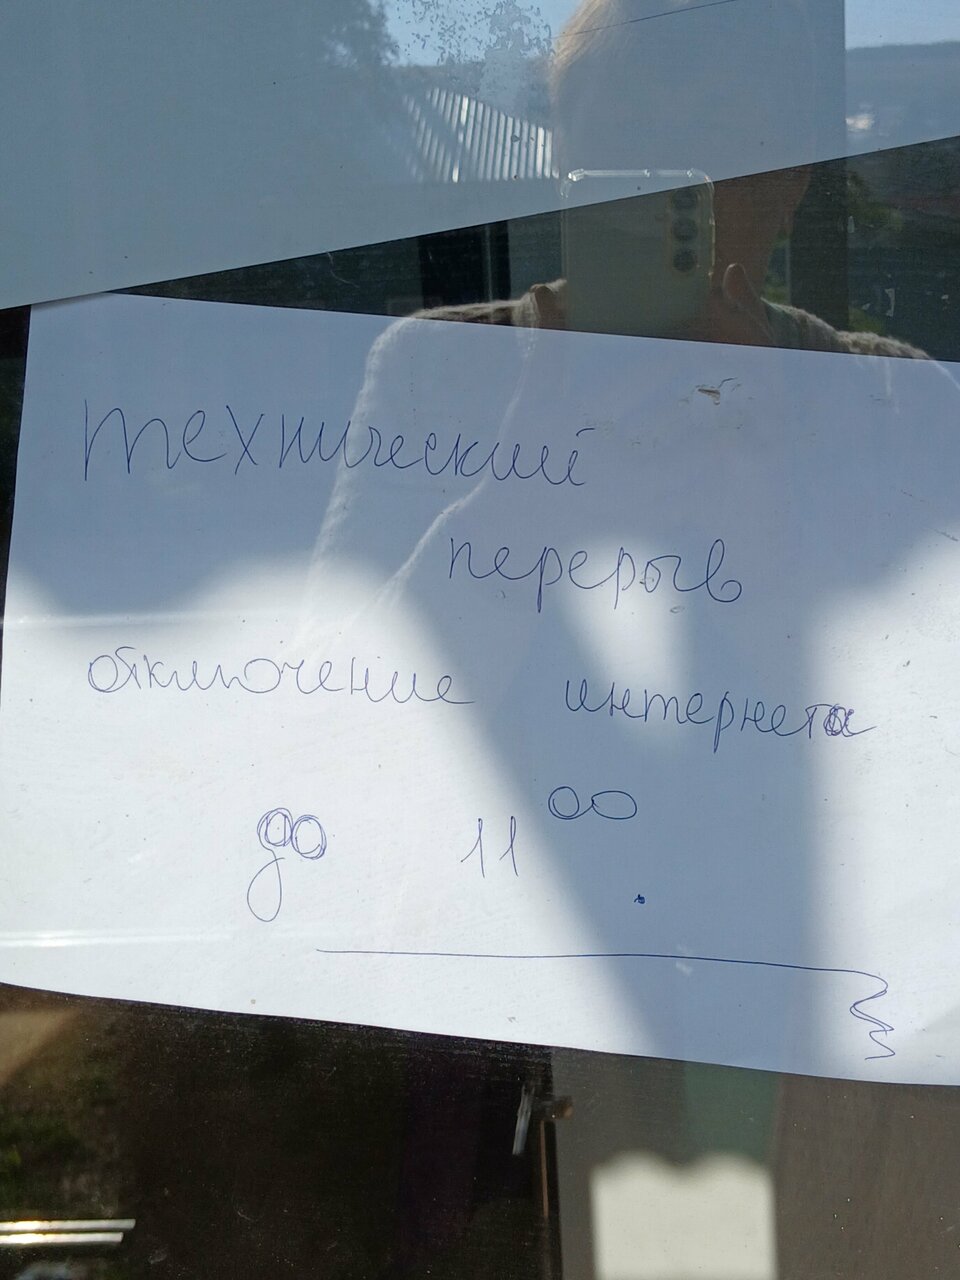 технический
перерыв
отключение интернета
до 11 00